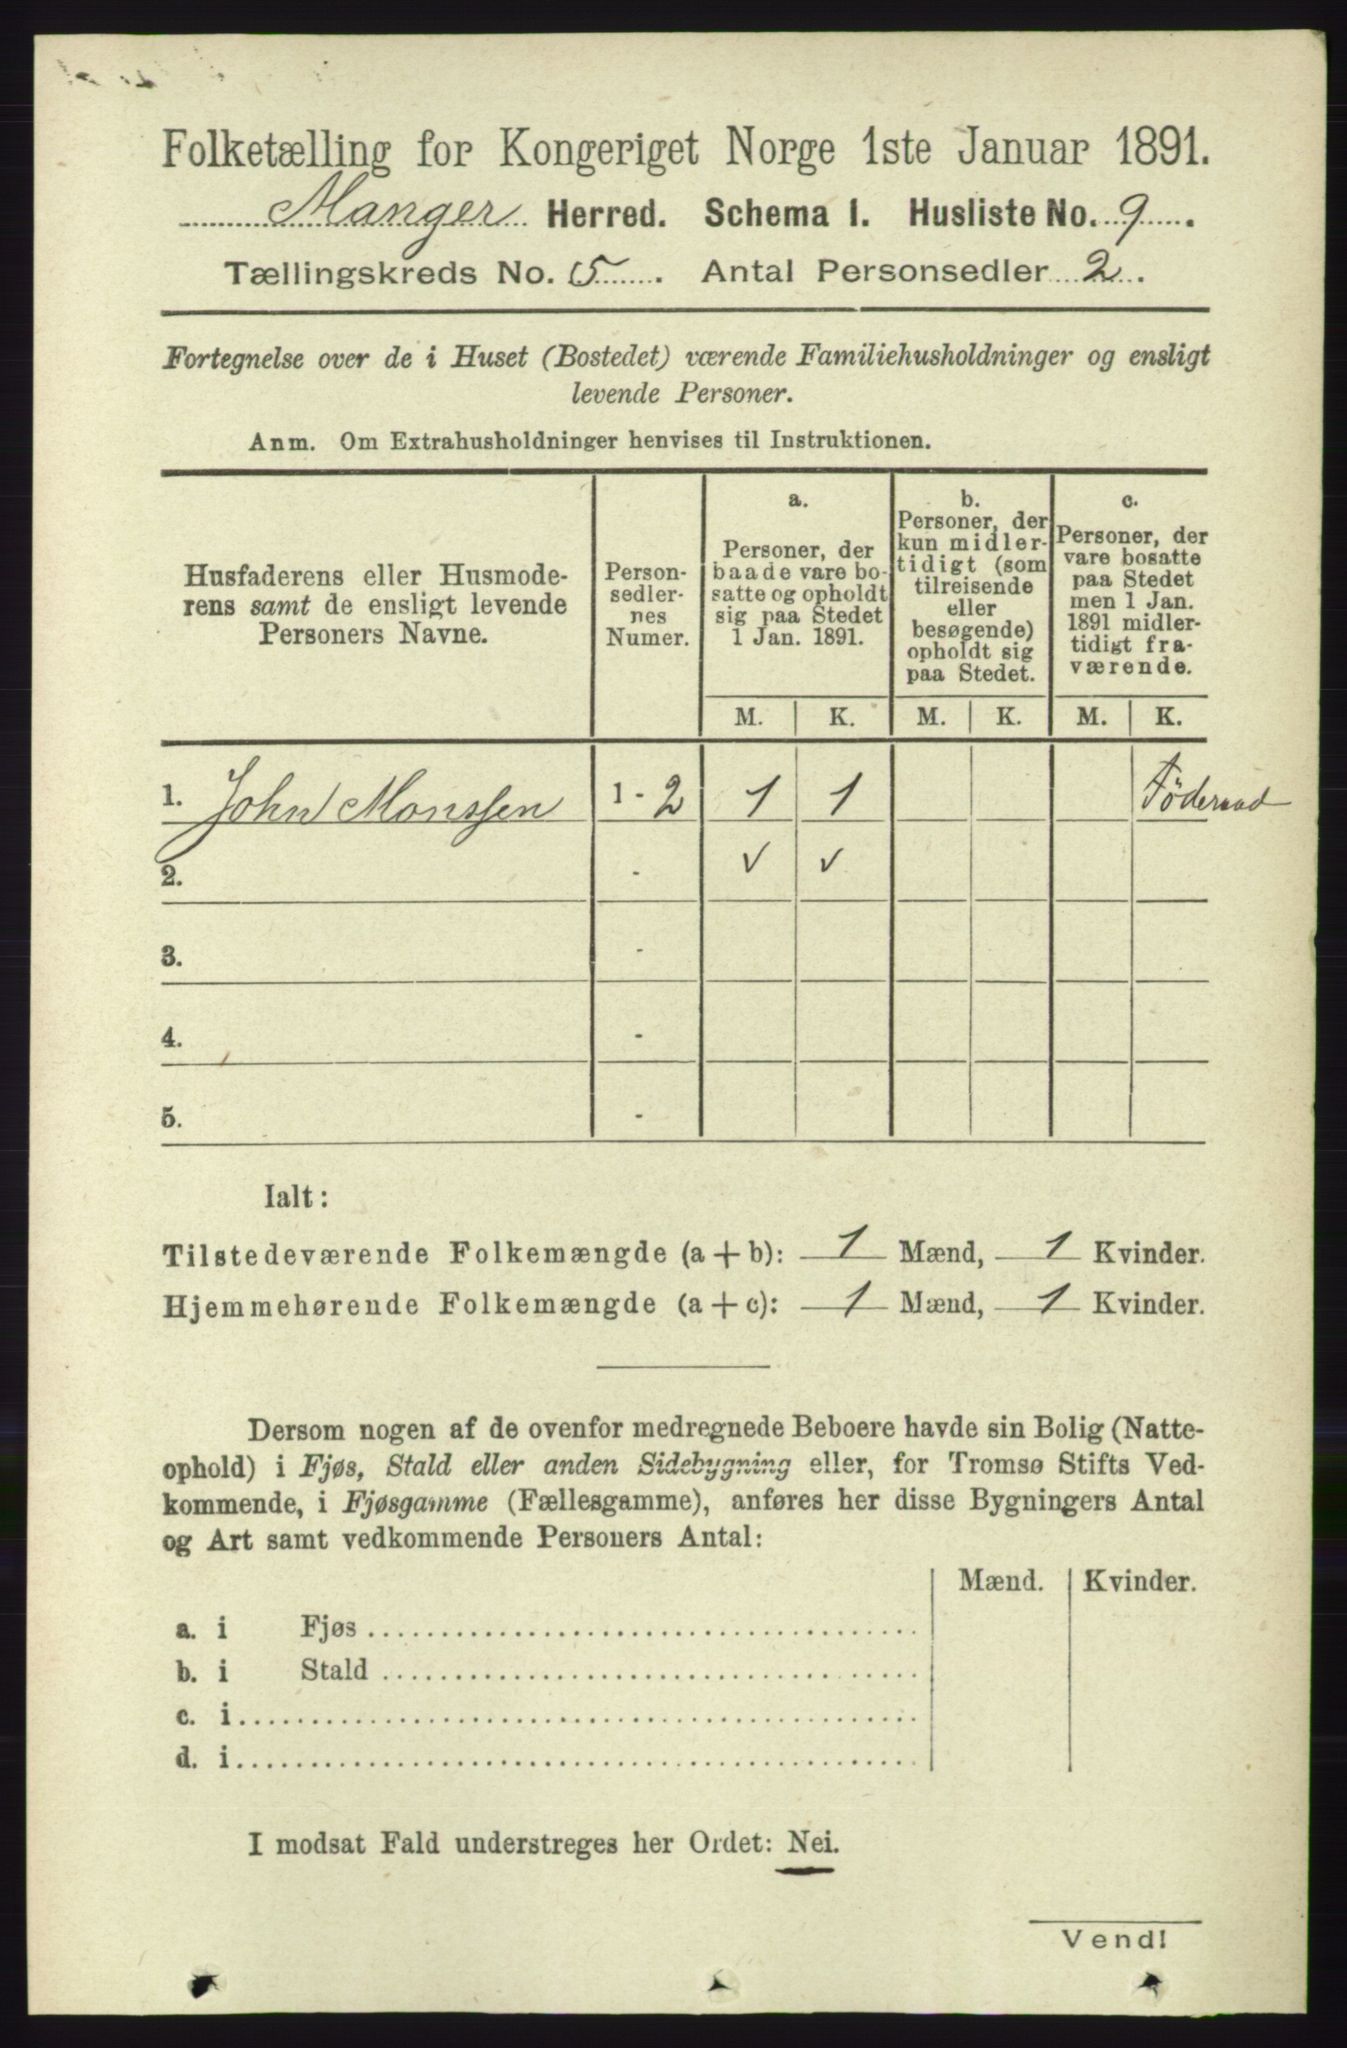 Folketælling for Kongeriget Norge 1ste Januar 1891.
Manger Herred. Schema 1. Husliste No. 9.
Tællingskreds No. 5. Antal Personsedler 2.
Fortegnelse over de i Huset (Bostedet) værende Familiehusholdninger og ensligt
levende Personer.
Anm. Om Extrahusholdninger henvises til Instruktionen.
Husfaderens eller Husmode-
rens samt de ensligt levende
Personers Navne.
Person-
sedler-
nes
Numer.
a.
Personer, der
baade vare bo-
satte og opholdt
sig paa Stedet
1 Jan. 1891.
b.
Personer, der
kun midler-
tidigt (som
tilreisende
eller
besøgende)
opholdt sig
paa Stedet.
c.
Personer, der
vare bosatte
paa Stedet
men 1 Jan.
1891 midler-
tidigt fra-
værende.
M. K. M. K. M. K.
1. John Monssen 1 - 2 1 1 Föderaad
2. - ✓ ✓
3. -
4. -
5. -
Ialt:
Tilstedeværende Folkemængde (a + b): 1 Mænd, 1 Kvinder.
Hjemmehørende Folkemængde (a + c): 1 Mænd, 1 Kvinder.
Dersom nogen af de ovenfor medregnede Beboere havde sin Bolig (Natte-
ophold) i Fjøs, Stald eller anden Sidebygning eller, for Tromsø Stifts Ved-
kommende, i Fjøsgamme (Fællesgamme), anføres her disse Bygningers Antal
og Art samt vedkommende Personers Antal:
Mænd. Kvinder.
a. i Fjøs
b. i Stald
c. i
d. i
I modsat Fald understreges her Ordet: Nei.
Vend!